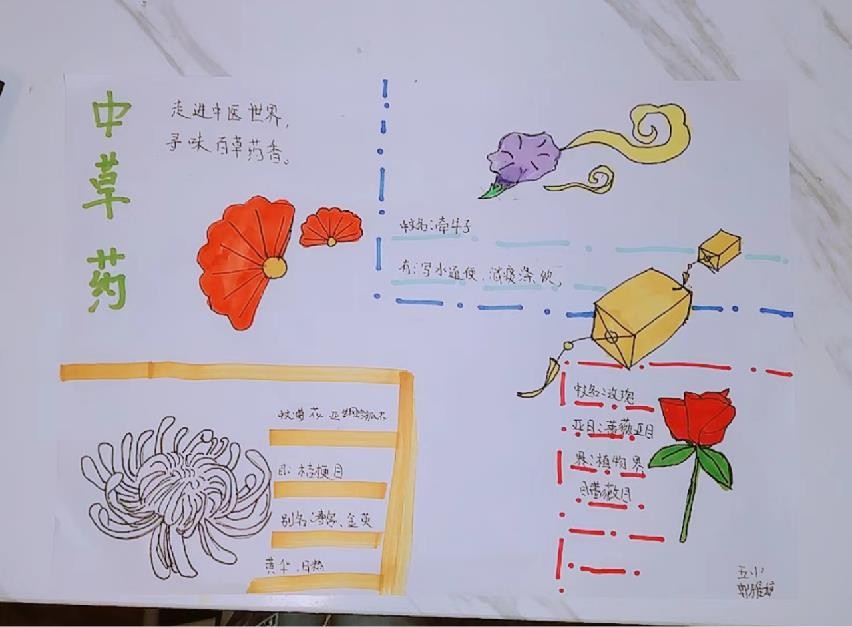 中草药
走进中医世界，
寻味百草药香。
中文名：牵牛子
有：写水通便、消痰涤饮，
目：桔梗目
别名：金英
中文名：玫瑰
亚目：蔷薇亚目
界：植物界
目：蔷薇目
五小